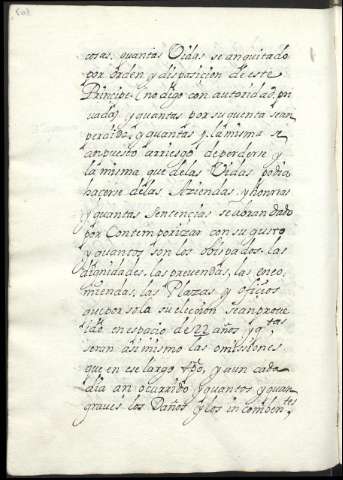 cosas, quantas Vidas se an quitado
por orden y disposicion de este
Principe (no digo con autoridad pri
vada) y quantas por su quenta sean
perdido, y quantas y la misma se
an puesto a rriesgo de perderse y
la misma que de las Vidas podia
hacerse de las Aziendas, y honrras
y quantas Sentencias se abran dado
por Contemporizar con su gusto
y quantos son los obispados, las
dignidades, las prevendas, las enco,
miendas, las Plazas, y oficios
que por sola su eleccion sean prove
ido en espacio de 22 años y q.tas
seran asi mismo las omisiones
que en ese largo tpo, y aun cada
dia an ocurrido y quantos y quan
graves los Daños y los incomben.tes